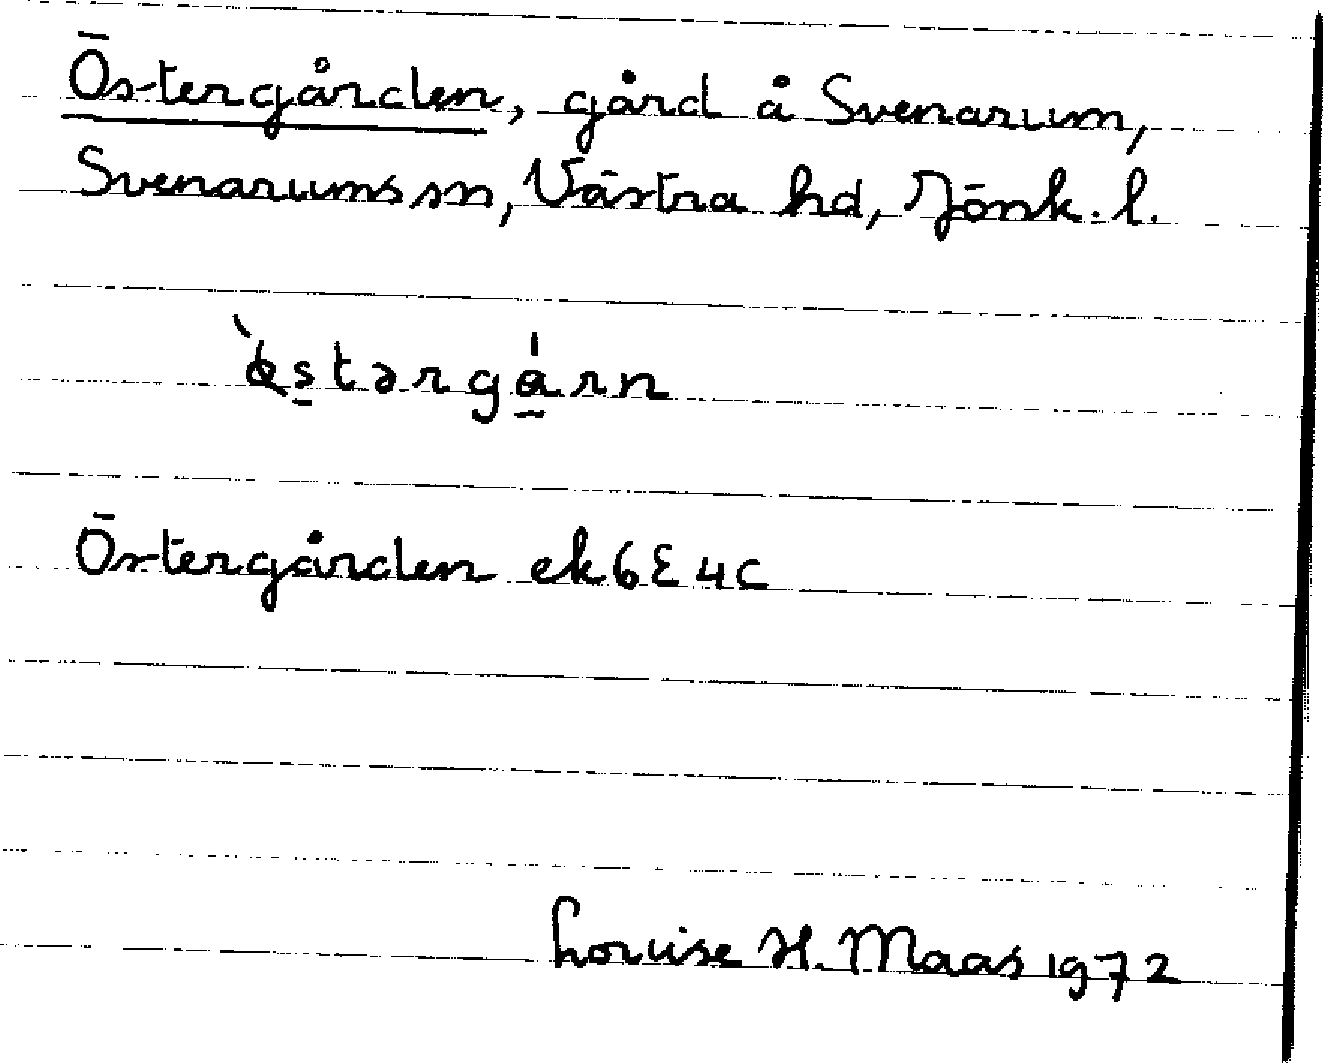 Östergården, gård å Svenarum,
Svenarums sn, Västra hd, Jönk. l.
Östergården ek 6E 4c
Louise H. Maas 1972